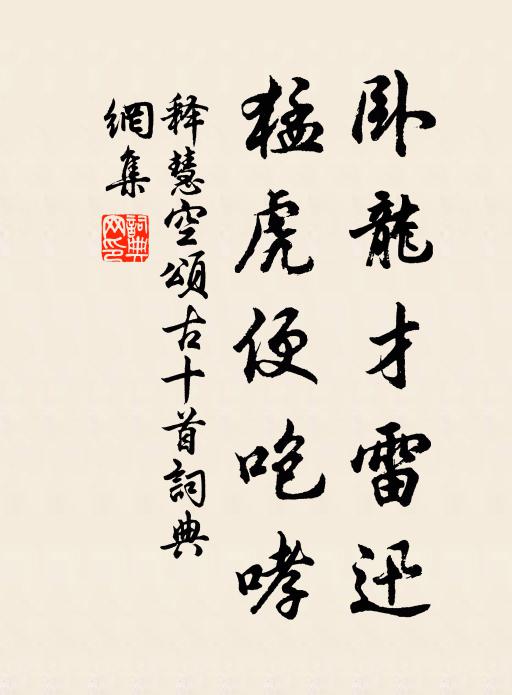 臥龍才雷迅
猛虎便咆哮
释慧空頌古十首詞典
網集
詞典
网印